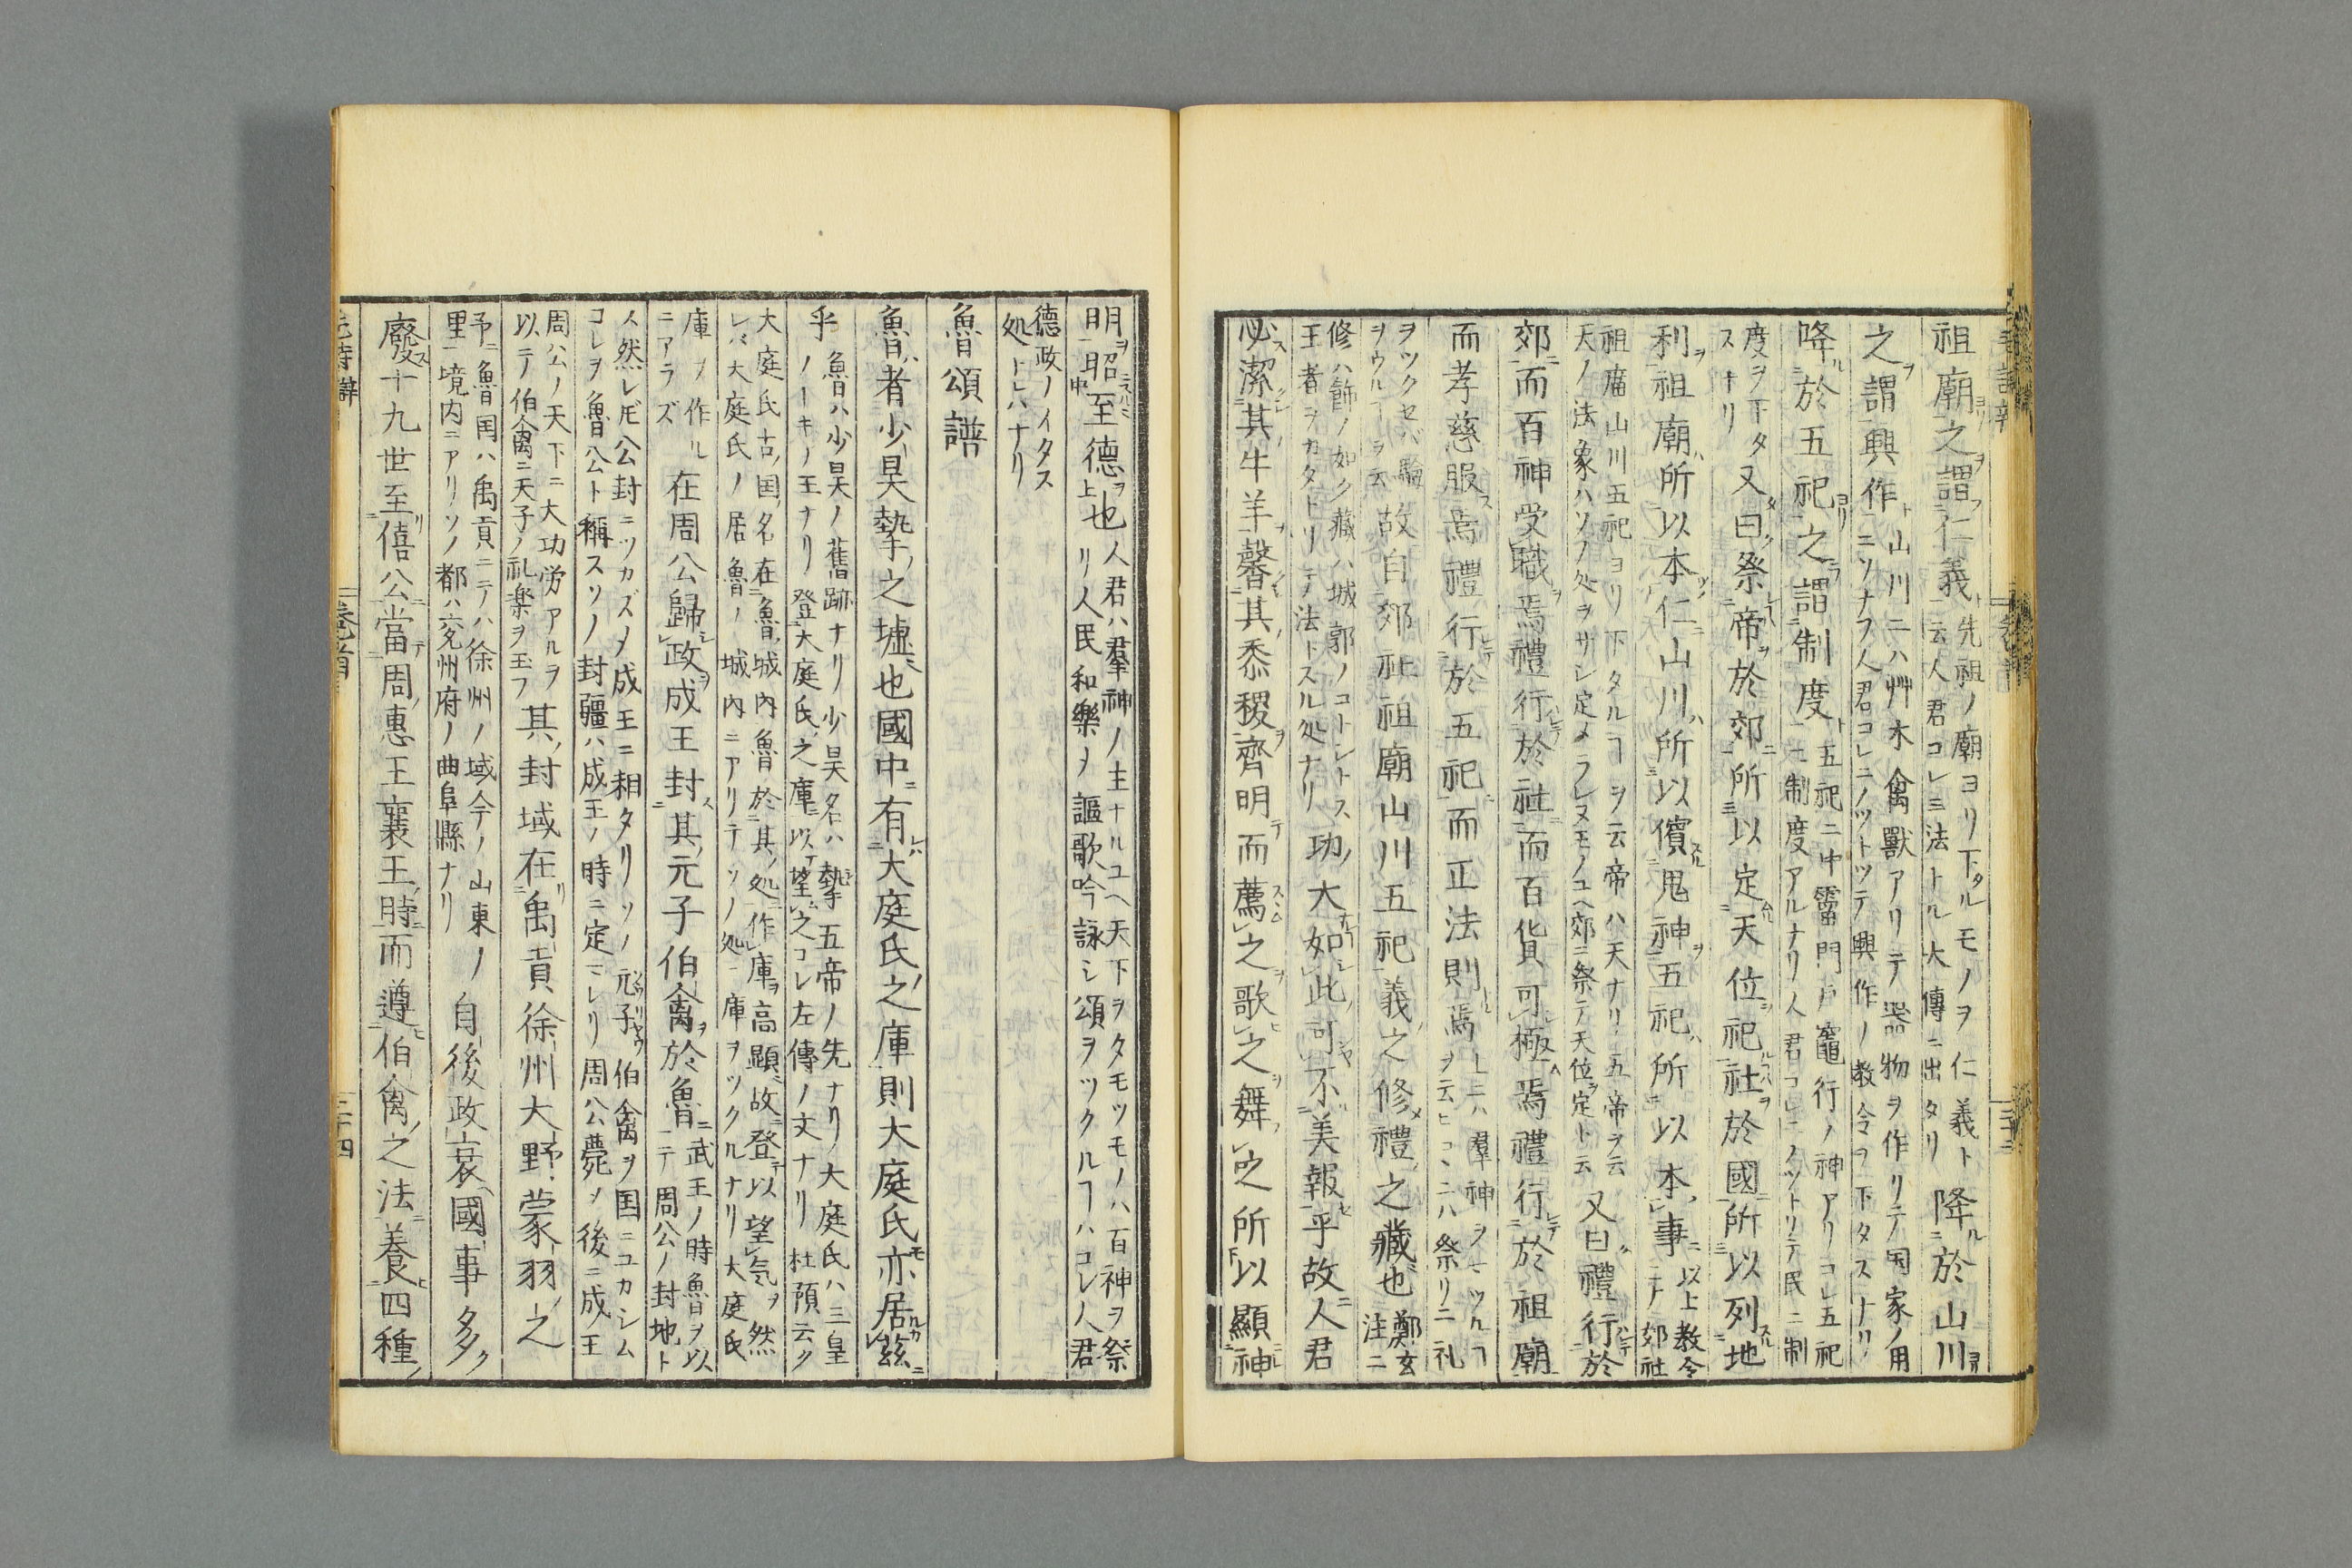 祖廟之謂仁義先祖ノ廟ヨリ下タルモノヲ仁義ト
云人君コレヲ法トル大傳ニ出タリ降於山川
之謂興作山川ニハ艸木禽獸アリテ器物ヲ作リテ国家ノ用
ニソナフ人君コレニノツトツテ興作ノ教令ヲ下タスナリ
降於五祀之謂制度五祀ニ中霤門戸竈行ノ神アリコレ五祀
ニ制度アルナリ人君コレニノツトリテ民ニ制
度ヲ下タ
スナリ又曰祭帝於郊所以定天位祀社於國所以列地
利祖廟所以本仁山川所以儐鬼神五祀所以本事以上教令
郊社
祖廟山川五祀ヨリ下タルヿヲ云帝ハ天ナリ五帝ヲ云
天ノ法象ハソノ処ヲサシ定メラレヌモノユヘ郊ニ祭テ天位ヲ定ト云又曰禮行於
郊而百神受職焉禮行於社而百貨可極焉禮行於祖廟
而孝慈服焉禮行於五祀而正法則焉上ニハ羣神ヲマツルヿ
ヲ云ヒコヽニハ祭リニ礼
ヲツクセバ
ヲウルヿヲ云故自郊社祖廟山川五祀義之修禮之藏也鄭玄
注ニ
修ハ飾ノ如ク藏ハ城郭ノコトシトス
王者ヲカタトリテ法トスル処ナリ功大如此可不美報乎故人君
必潔其牛羊馨其黍稷齊明而薦之歌之舞之所以顯神
明昭至德也人君ハ羣神ノ主ナルユヘ天下ヲタモツモノハ百神ヲ祭
リ人民和樂メ謳歌吟詠シ頌ヲツクルヿハコレ人君
德政ノイタス
処トレハナリ
魯頌譜
魯者少昊摯之墟也國中有大庭氏之庫則大庭氏亦居茲
乎魯ハ少昊ノ舊跡ナリ少昊名ハ摯五帝ノ先ナリ大庭氏ハ三皇
ノ一キノ王ナリ登大庭氏之庫以望之コレ左傳ノ文ナリ杜預云ク
大庭氏古国名在魯城内魯於其処作庫高顯故登以望気ヲ然
レバ大庭氏ノ居魯ノ城内ニアリテソノ処ニ庫ヲツクルナリ大庭氏
庫ヲ作ル
ニアラズ在周公歸政成王封其元子伯禽於魯武王ノ時魯ヲ以
テ周公ノ封地ト
ス然レ𪜈公封ニツカズメ成王ニ相タリソノ元子伯禽ヲ国ニユカシム
コレヲ魯公ト稱スソノ封疆ハ成王ノ時ニ定マレリ周公薨メ後ニ成王
周公ノ天下ニ大功労アルヲ
以テ伯禽ニ天子ノ礼楽ヲ玉フ其封域在禹貢徐州大野蒙羽之
予ニ魯国ハ禹貢ニテハ徐州ノ域今ノ山東ノ
里境内ニアリソノ都ハ兗州府ノ曲阜縣ナリ自後政衰國事多
廢十九世至僖公當周惠王襄王時而遵伯禽之法養四種
毛詩辯
巻首
三十四